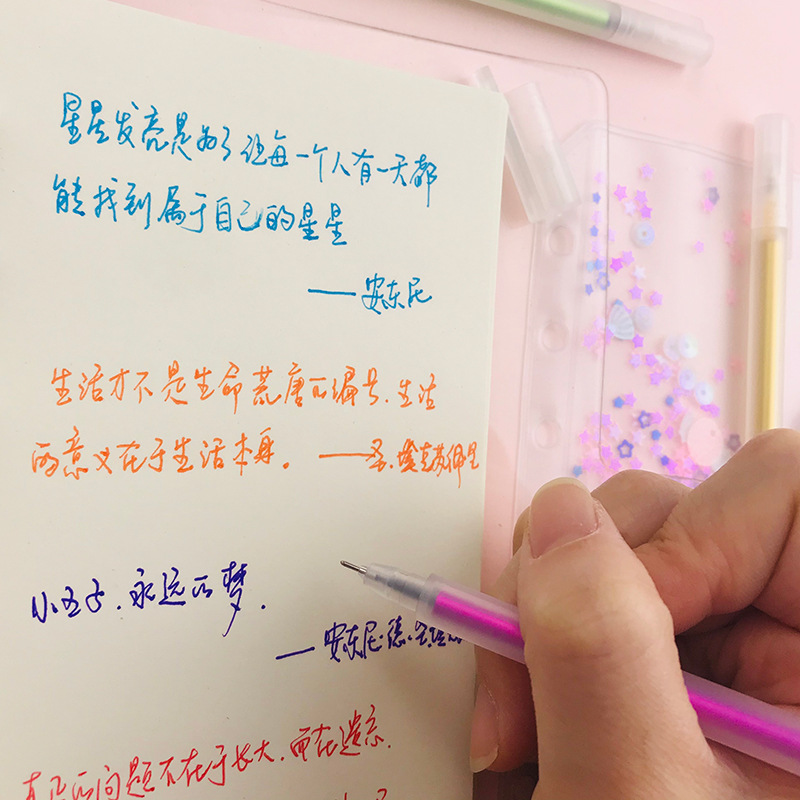 星星发亮是为了让每一个人有一天都
能找到属于自己的星星
——安东尼
生活才不是生命荒唐的编号,生活
的意义在于生活本身。——圣·埃克苏佩里
小王子,永远的梦.
——安东尼·德·圣
真正的问题不在于长大,而在遗忘.